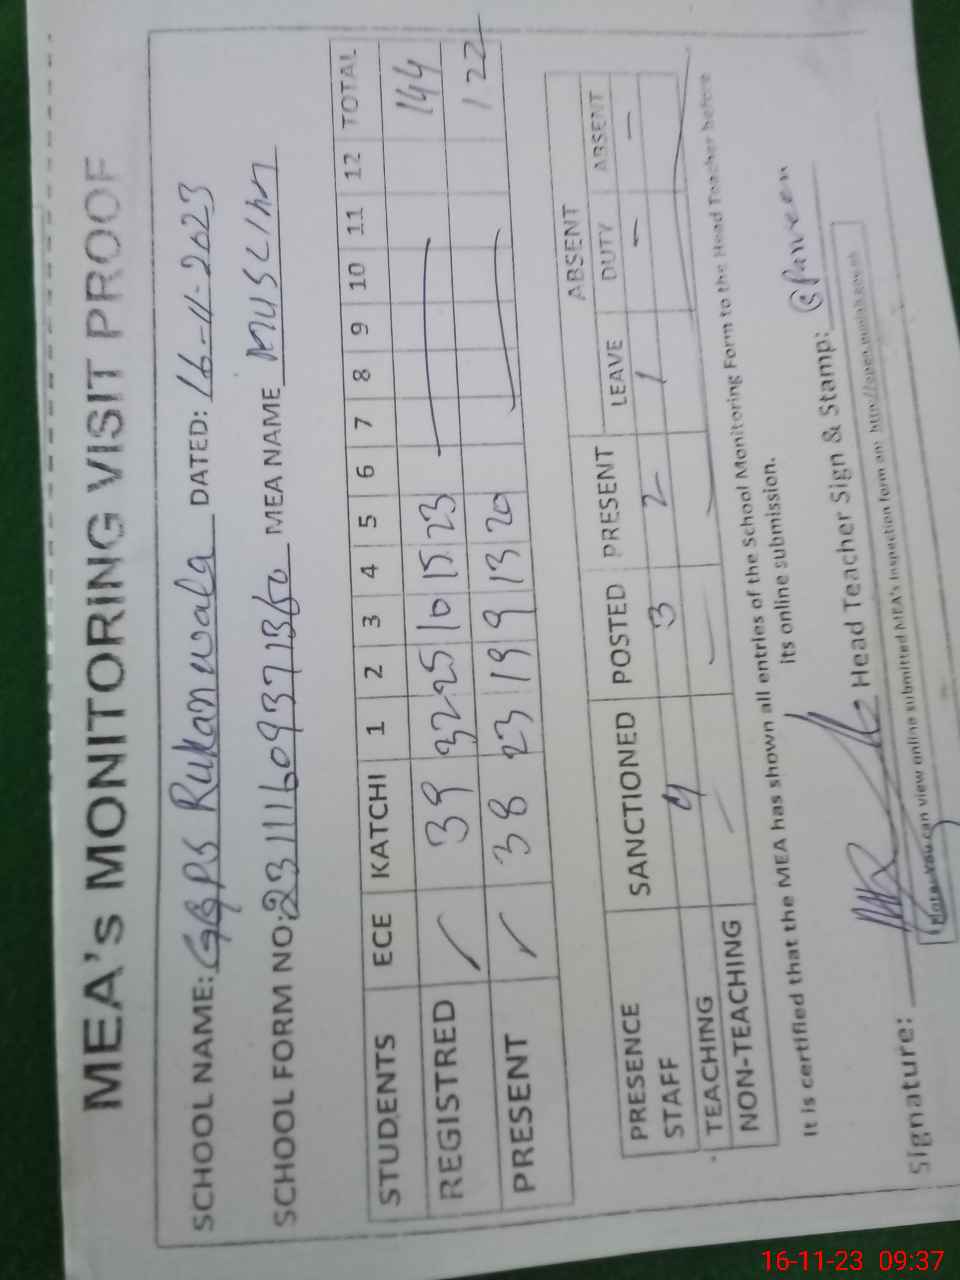 MEA's MONITORING VISIT PROOF
SCHOOL NAME: GGPS Rukanwala DATED: 16-11-2023
SCHOOL FORM NO: MEA NAME
STUDENTS ECE KATCHI 1 2 3 4 5 6 7 8 9 10 11 12 TOTAL
REGISTRED 39 32 25 10 15 23 144
PRESENT 38 23 19 9 13 20 122
PRESENCE SANCTIONED POSTED PRESENT LEAVE ABSENT
STAFF DUTY ABSENT
TEACHING 4 3 2 1 - -
NON-TEACHING
It is certified that the MEA has shown all entries of the School Monitoring Form to the Head Teacher before
its online submission.
Signature: Head Teacher Sign & Stamp:
Note: You can view online submitted MEA's Inspection form on: http://open.punjab.gov.pk
16-11-23 09:37